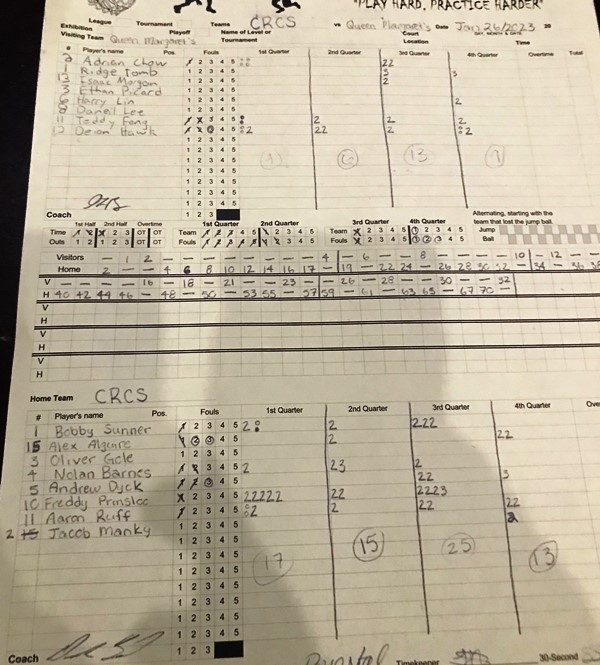 "PLAY HARD, PRACTICE HARDER"
League Tournament Teams CRCS vs Queen Margaret's Date Jan 26/2023 20
Exhibition Playoff Name of Level or Tournament Court Location Time
Visiting Team Queen Margaret's
# Player's name Fouls 1st Quarter 2nd Quarter 3rd Quarter 4th Quarter Overtime Total
2 Adrian Chow 1 2 3 4 5 22
1 Ridge Tomb 1 2 3 4 5 3 3
13 Isaac Morgan 1 2 3 4 5 2
3 Ethan Picard 1 2 3 4 5
6 Harry Lin 1 2 3 4 5 2
8 Daniel Lee 1 2 3 4 5
11 Teddy Feng 1 2 3 4 5 2 2
12 Deion Hawk 1 2 3 4 5 2 22 2 2
1 2 3 4 5
1 2 3 4 5 6 13
1 2 3 4 5
1 2 3 4 5
1 2 3 4 5
Coach 1 2 3
1st Half 2nd Half Overtime 1st Quarter 2nd Quarter 3rd Quarter 4th Quarter Alternating, starting with the team that lost the jump ball.
Time Outs 1 2 1 2 3 OT OT Team Fouls 1 2 3 4 5 1 2 3 4 5 Team Fouls 1 2 3 4 5 1 2 3 4 5 Jump Ball
Visitors — 1 2 — — — — — — — — 4 — 6 — — 8 — — — — 10 — 12 —
Home 2 — — 4 6 8 10 12 14 16 17 — 19 — 22 24 — 26 28 30 32 — 34 — 36 38
V — — — — 16 — 18 — 21 — — 23 — — 26 — 28 — — 30 — 32
H 40 42 44 46 — 48 — 50 — 53 55 — 57 59 — 61 — 63 65 — 67 70 —
V
H
V
H
V
H
Home Team CRCS
# Player's name Pos. Fouls 1st Quarter 2nd Quarter 3rd Quarter 4th Quarter
1 Bobby Sunner 1 2 3 4 5 2 2 222
15 Alex Alguire 1 2 3 4 5 2 22
3 Oliver Gole 1 2 3 4 5
4 Nolan Barnes 1 2 3 4 5 2 23 2
5 Andrew Dyck 1 2 3 4 5 22 3
10 Freddy Prinsloo 1 2 3 4 5 22222 22 2223
11 Aaron Ruff 1 2 3 4 5 2 2 22 22
2 Jacob Manky 1 2 3 4 5 2
1 2 3 4 5
1 2 3 4 5 17 15 25 13
1 2 3 4 5
1 2 3 4 5
1 2 3 4 5
1 2 3 4 5
1 2 3 4 5
Coach 1 2 3
Timekeeper 30-Second